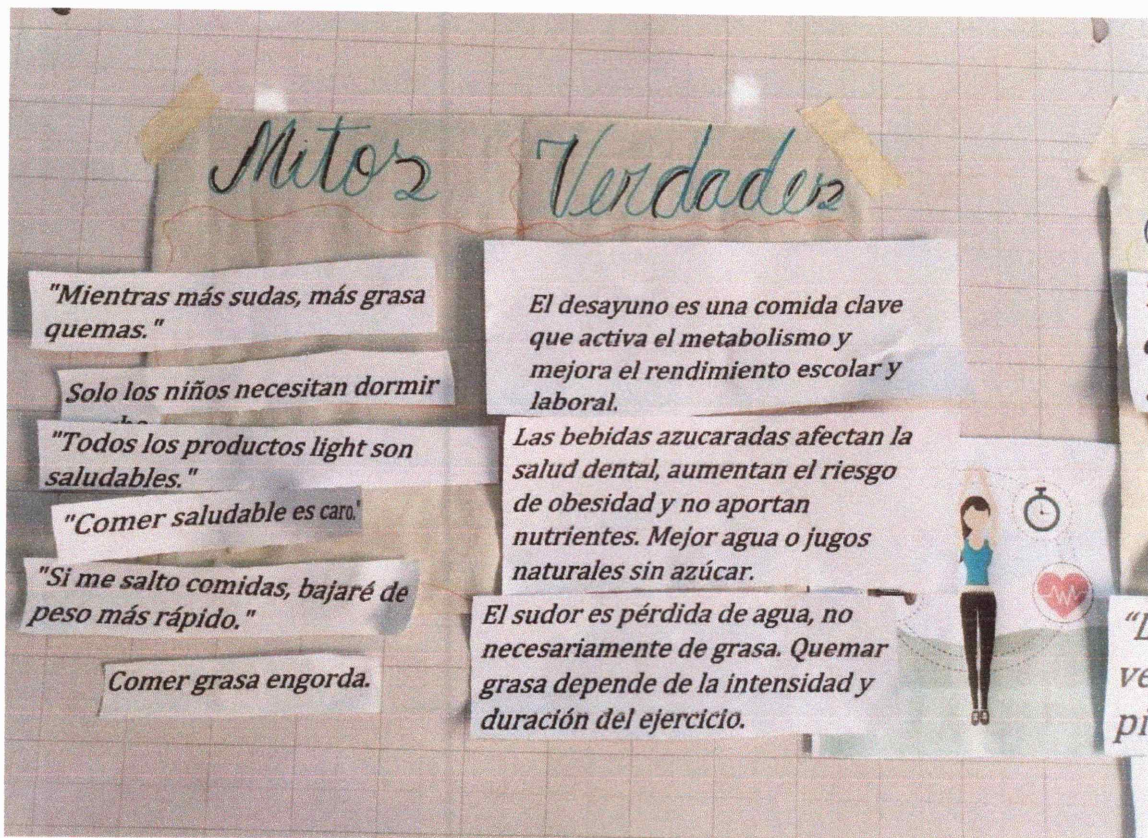 Mitos
Verdades
"Mientras más sudas, más grasa
quemas."
Solo los niños necesitan dormir
"Todos los productos light son
saludables."
"Comer saludable es caro."
"Si me salto comidas, bajaré de
peso más rápido."
Comer grasa engorda.
El desayuno es una comida clave
que activa el metabolismo y
mejora el rendimiento escolar y
laboral.
Las bebidas azucaradas afectan la
salud dental, aumentan el riesgo
de obesidad y no aportan
nutrientes. Mejor agua o jugos
naturales sin azúcar.
El sudor es pérdida de agua, no
necesariamente de grasa. Quemar
grasa depende de la intensidad y
duración del ejercicio.